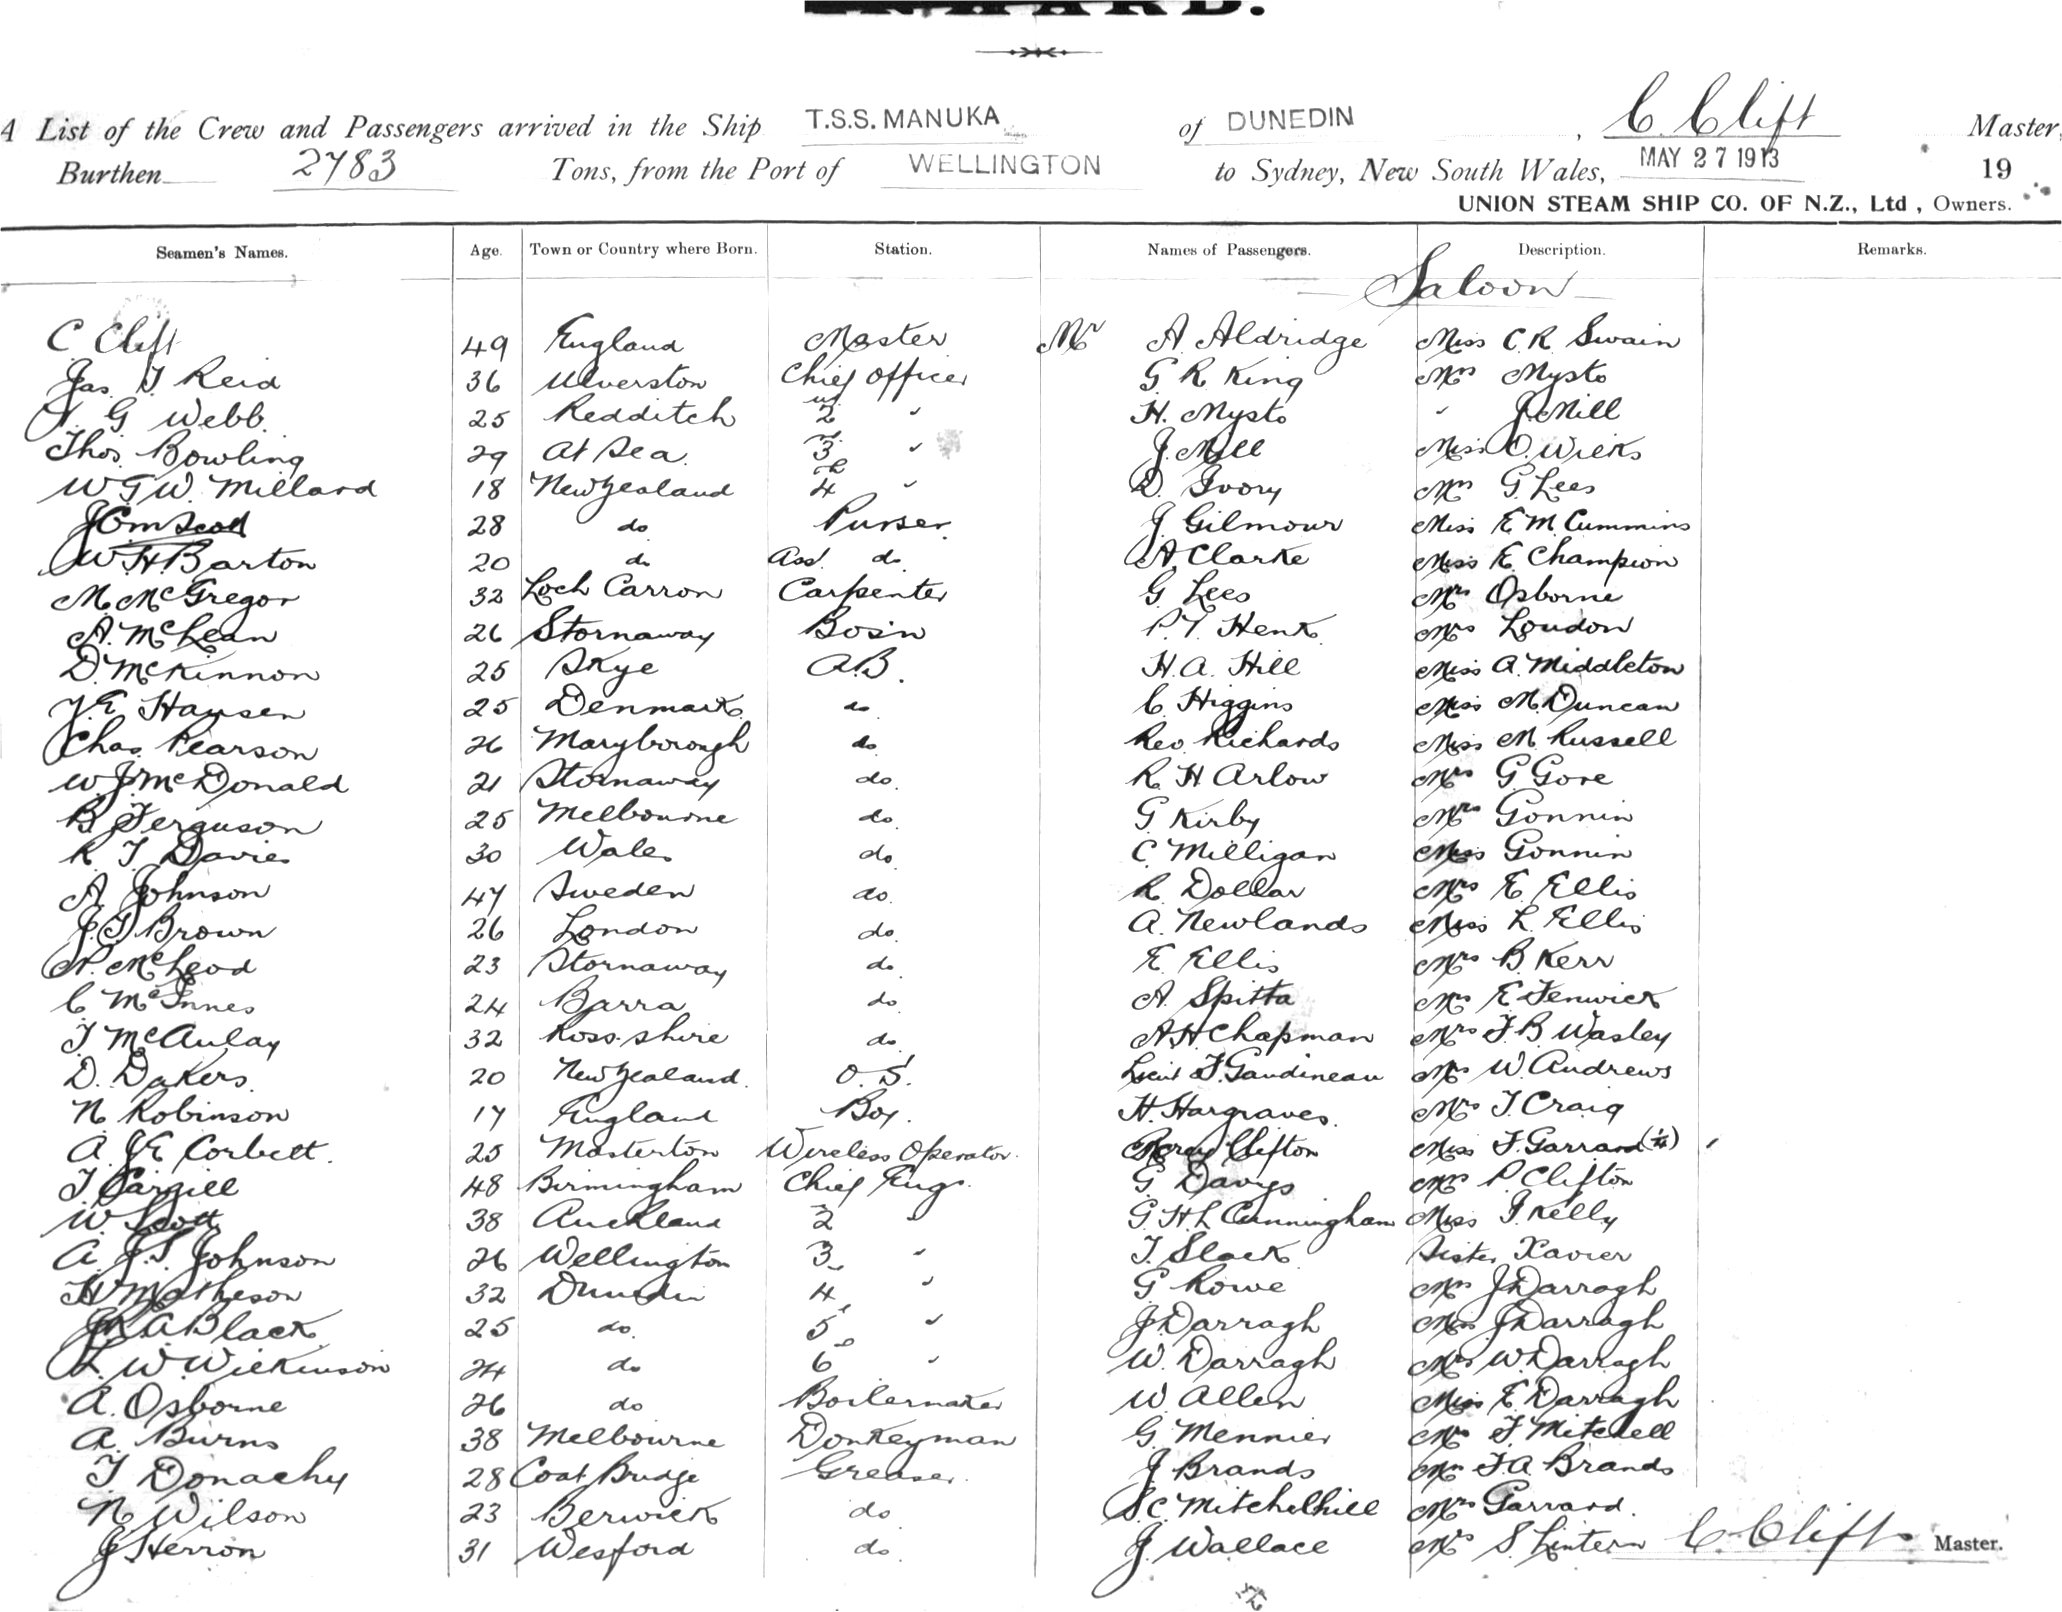 A List of the Crew and Passengers arrived in the Ship T.S.S. MANUKA of DUNEDIN, C. Clift Master,
Burthen 2783 Tons, from the Port of WELLINGTON to Sydney, New South Wales, MAY 27 1913 19
UNION STEAM SHIP CO. OF N.Z., Ltd, Owners.
Seamen's Names. Age. Town or Country where Born. Station. Names of Passengers. Description. Remarks.
Saloon
C Clift 49 England Master Mr A. Aldridge Miss C. R. Swain
Jas. T Reid 36 Ulverston Chief Officer G R King Mrs Mysto
G Webb. 25 Redditch 2 " H. Mysto " J. Mill
Thos. Bowling 29 At Sea. 3 " J. Mill Miss O. Wicks
W G W. Millard 18 New Zealand 4 " D. Ivory Mrs G. Lees
28 do Purser. J Gilmour Miss E M. Cummins
W. H. Barton 20 do Asst. do. A. Clarke Miss E. Champion
M. McGregor 32 Loch Carron Carpenter G. Lees Mrs Osborne
A. McLean 26 Stornaway Bos'n P. T. Henk Mrs Loudon
D. McKinnon 25 Skye A.B. H. A. Hill Miss A. Middleton
Hansen 25 Denmark. do C. Higgins Miss M. Duncan
Chas. Pearson 26 Maryborough do Rev. Richards Miss M. Russell
W. J. McDonald 21 Stornaway do. R H Arlow Mrs G. Gore
B. Ferguson 25 Melbourne do. G Kirby Mrs Gonnin
R T Davies 30 Wales do. C. Milligan Miss Gonnin
A. Johnson 47 Sweden do. R. Dollar Mrs E. Ellis
J. T Brown 26 London do. A. Newlands Miss L. Ellis
N. McLeod 23 Stornaway do. E. Ellis Mrs B. Kerr
C McInnes 24 Barra do. A. Spitta Mrs E. Fenwick
T McAulay 32 Ross-shire do. A. H Chapman Mrs F. B. Wasley
D. Dakers. 20 New Zealand. O. S. Lieut F. Gaudineau Mrs W. Andrews
N Robinson 17 England Boy. H. Hargraves. Mrs T. Craig
A. J E Corbett. 25 Masterton Wireless Operator. Percy Clifton Miss F. Garrard
T. Cargill 48 Birmingham Chief Engr. G Davys Mrs P Clifton
W Scott 38 Auckland 2 " G. H L Cunningham Miss J. Kelly
A. J. S. Johnson 26 Wellington 3 " T. Slack Sister Xavier
H Matheson 32 Dunedin 4 " G Rowe Mrs J. Darragh
A Black 25 do. 5 " J. Darragh Miss J. Darragh
L. W. Wilkinson 24 do 6 " W. Darragh Mrs W. Darragh
A. Osborne 26 do Boilermaker W Allen Miss E Darragh
A. Burns 38 Melbourne Donkeyman G Mennier Mrs F Mitchell
T Donachy 28 Coat Bridge Greaser. J Brands Mrs F. A. Brands
N Wilson 23 Berwick do S. C. Mitchelhill Mrs Garrard.
J Herron 31 Wesford do J. Wallace S. Lintern C. Clift Master.